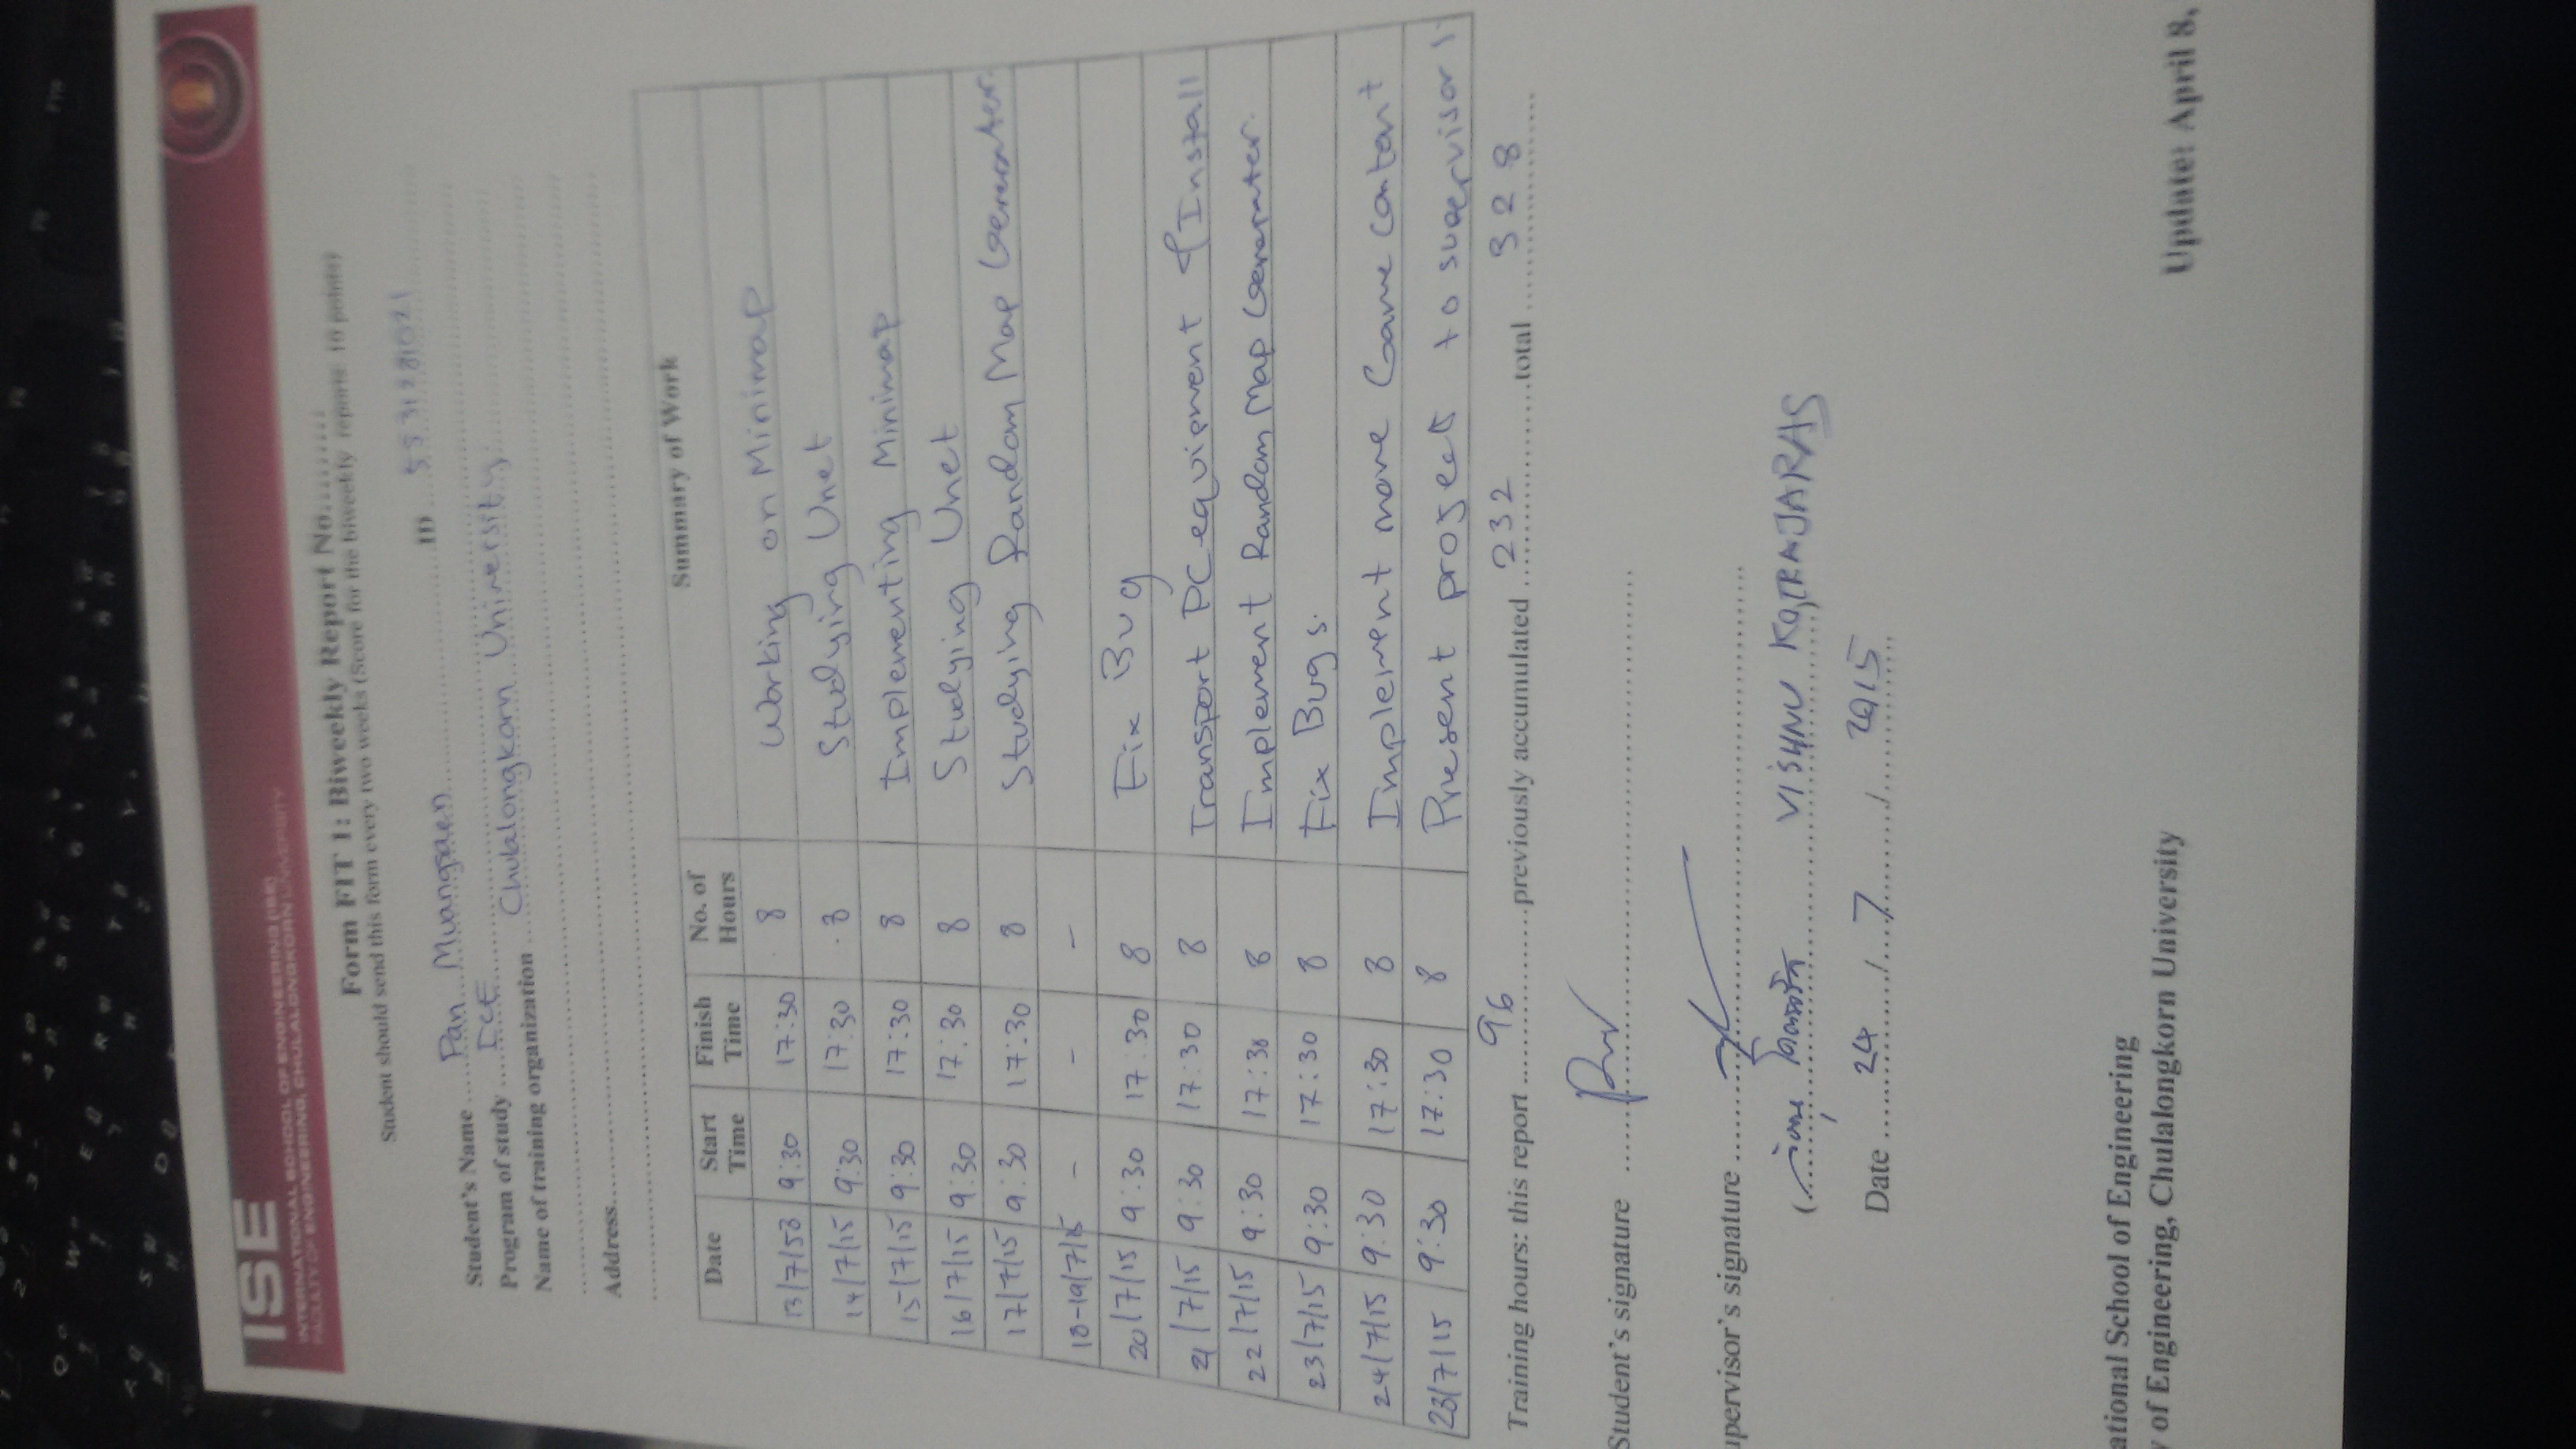 ISE
INTERNATIONAL SCHOOL OF ENGINEERING (ISE)
FACULTY OF ENGINEERING, CHULALONGKORN UNIVERSITY
Form FIT 1: Biweekly Report No.........
Student should send this form every two weeks (Score for the biweekly reports: 10 points)
Student's Name Pan Muangsaen ID
Program of study ICE
Name of training organization Chulalongkorn University
Address
Date Start Time Finish Time No. of Hours Summary of Work
13/7/58 9:30 17:30 8 Working on Minimap
14/7/15 9:30 17:30 8 Studying Unet
15/7/15 9:30 17:30 8 Implementing Minimap
16/7/15 9:30 17:30 8 Studying Unet
17/7/15 9:30 17:30 8 Studying Random Map Generater.
18-19/7/15 - - -
20/7/15 9:30 17:30 8 Fix Bug
21/7/15 9:30 17:30 8 Transport PC equipment & Install
22/7/15 9:30 17:30 8 Implement Random Map Generater.
23/7/15 9:30 17:30 8 Fix Bugs.
24/7/15 9:30 17:30 8 Implement more Game content
9:30 17:30 8 Present project to supervisor
Training hours: this report 96 previously accumulated 232 total 328
Student's signature
upervisor's signature
( VISHNU KOTRAJARAS )
Date 24 / 7 / 2015
ational School of Engineering
y of Engineering, Chulalongkorn University
Update: April 8,